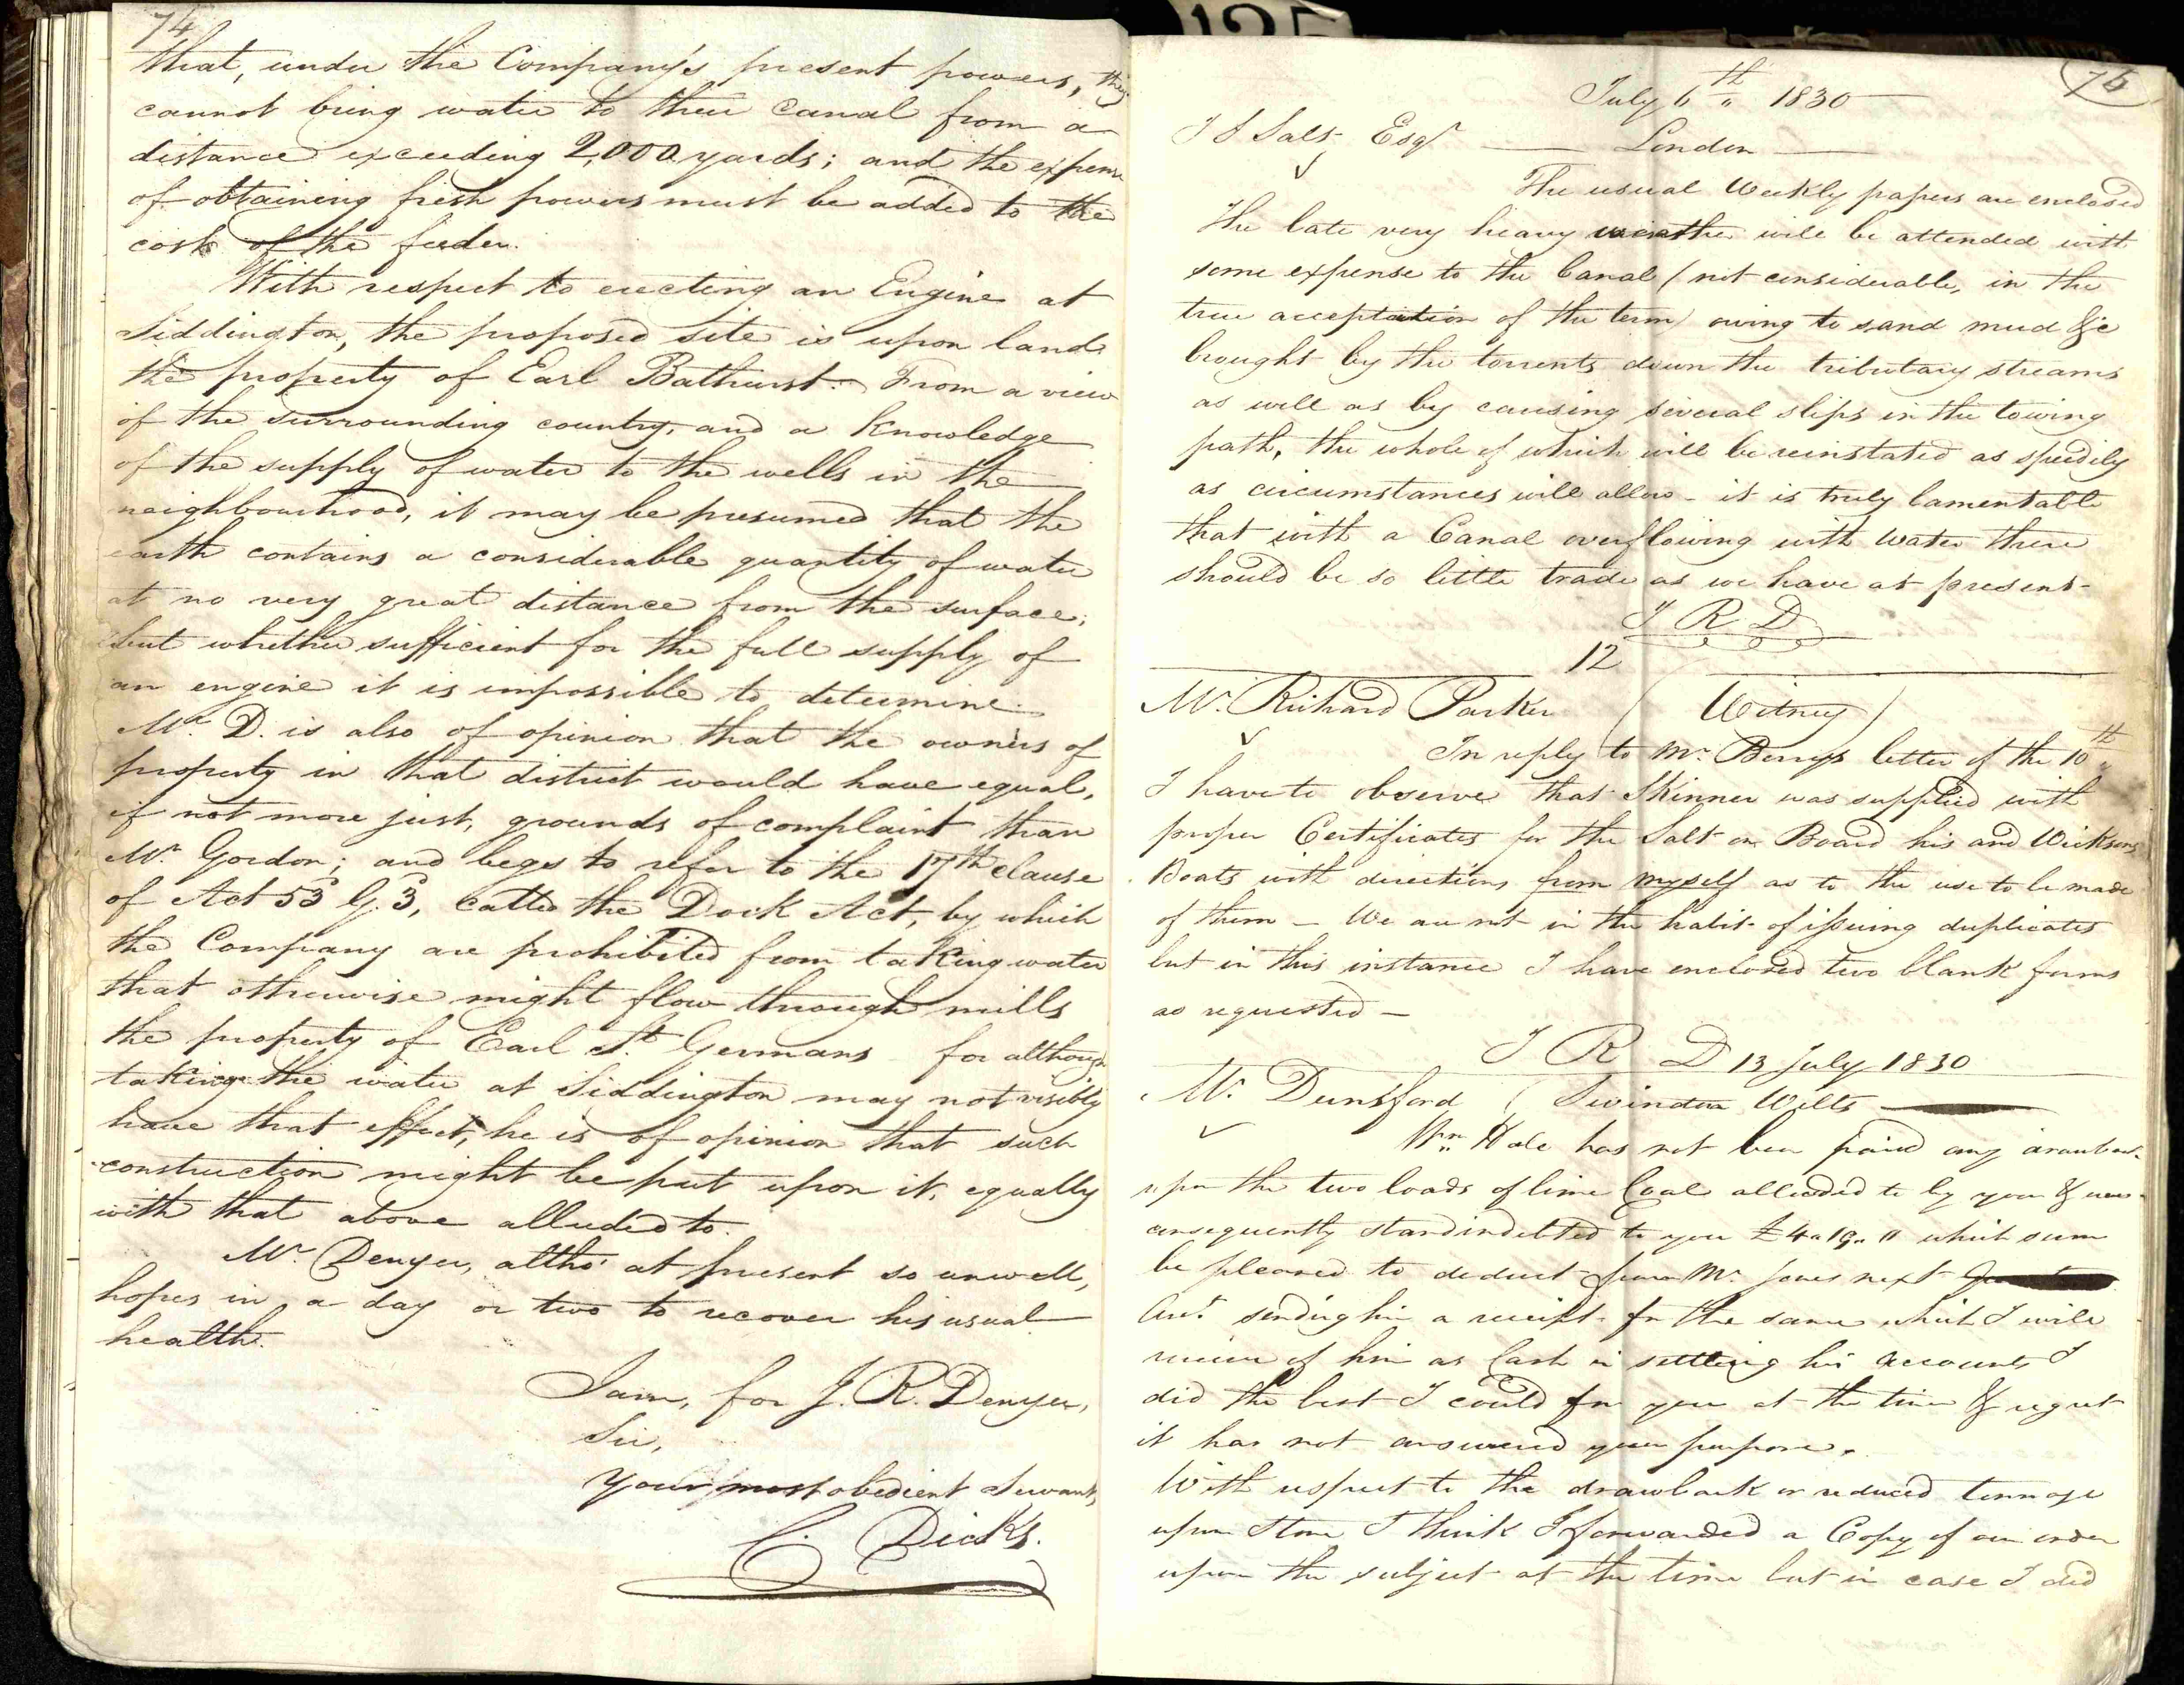 74
that, under the Company's present powers, they
cannot bring water to their canal from a
distance exceeding 2,000 yards; and the expense
of obtaining fresh powers must be added to the
cost of the feeder.
With respect to erecting an Engine at
Siddington, the proposed site is upon land
the property of Earl Bathurst. From a view
of the surrounding country, and a knowledge
of the supply of water to the wells in the
neighbourhood, it may be presumed that the
earth contains a considerable quantity of water
at no very great distance from the surface;
but whether sufficient for the full supply of
an engine it is impossible to determine.
Mr. D. is also of opinion that the owners of
property in that district would have equal,
if not more just, grounds of complaint than
Mr. Gordon; and begs to refer to the 17th clause
of Act 53 G. 3, called the Dock Act, by which
the Company are prohibited from taking water
that otherwise might flow through mills
the property of Earl St. Germans for although
taking the water at Siddington may not visibly
have that effect, he is of opinion that such
construction might be put upon it, equally
with that above alluded to.
Mr. Denyer, altho' at present so unwell,
hopes in a day or two to recover his usual
health.
I am, for J. R. Denyer,
Sir,
Your most obedient Servant,
C. Dicks.
125
75
July 6th 1830
J S Salt Esqr London
The usual Weekly papers are enclosed
The late very heavy weather will be attended with
some expense to the Canal (not considerable, in the
true acceptation of the term) owing to sand mud &c
brought by the torrents down the tributary streams
as well as by causing several slips in the towing
path, the whole of which will be reinstated as speedily
as circumstances will allow - it is truly lamentable
that with a Canal overflowing with Water there
should be so little trade as we have at present -
J R D
12
Mr. Richard Parker (Witney)
In reply to Mr. Berrys letter of the 10th
I have to observe that Skinner was supplied with
proper Certificates for the Salt on Board his and Wicksons
Boats with directions from myself as to the use to be made
of them - We are not in the habit of issuing duplicates
but in this instance I have enclosed two blank forms
as requested -
J R D 13 July 1830
Mr. Dunsford (Swindon Wilts
Wm. Hale has not been paid any drawback
upon the two loads of lime Coal alluded to by you &
consequently stand indebted to you £4 " 19 " 11 which sum
be pleased to deduct from Mr. Jones next
Acct. sending him a receipt for the same which I will
receive of him as Cash in settling his accounts I
did the best I could for you at the time & regret
it has not answered your purpose.
With respect to the drawback or reduced tonnage
upon Stone I think I forwarded a Copy of our order
upon the subject at the time but in case I did